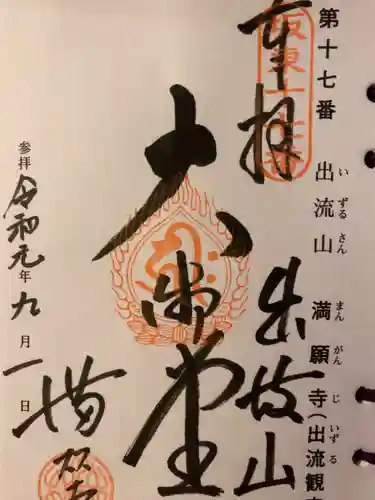 第十七番 出流山 満願寺(出流観
い ずる さん まん がん じ いずる
奉拝
坂東十七番
出流山
大御堂
満願寺
参拝 令和元年九月一日